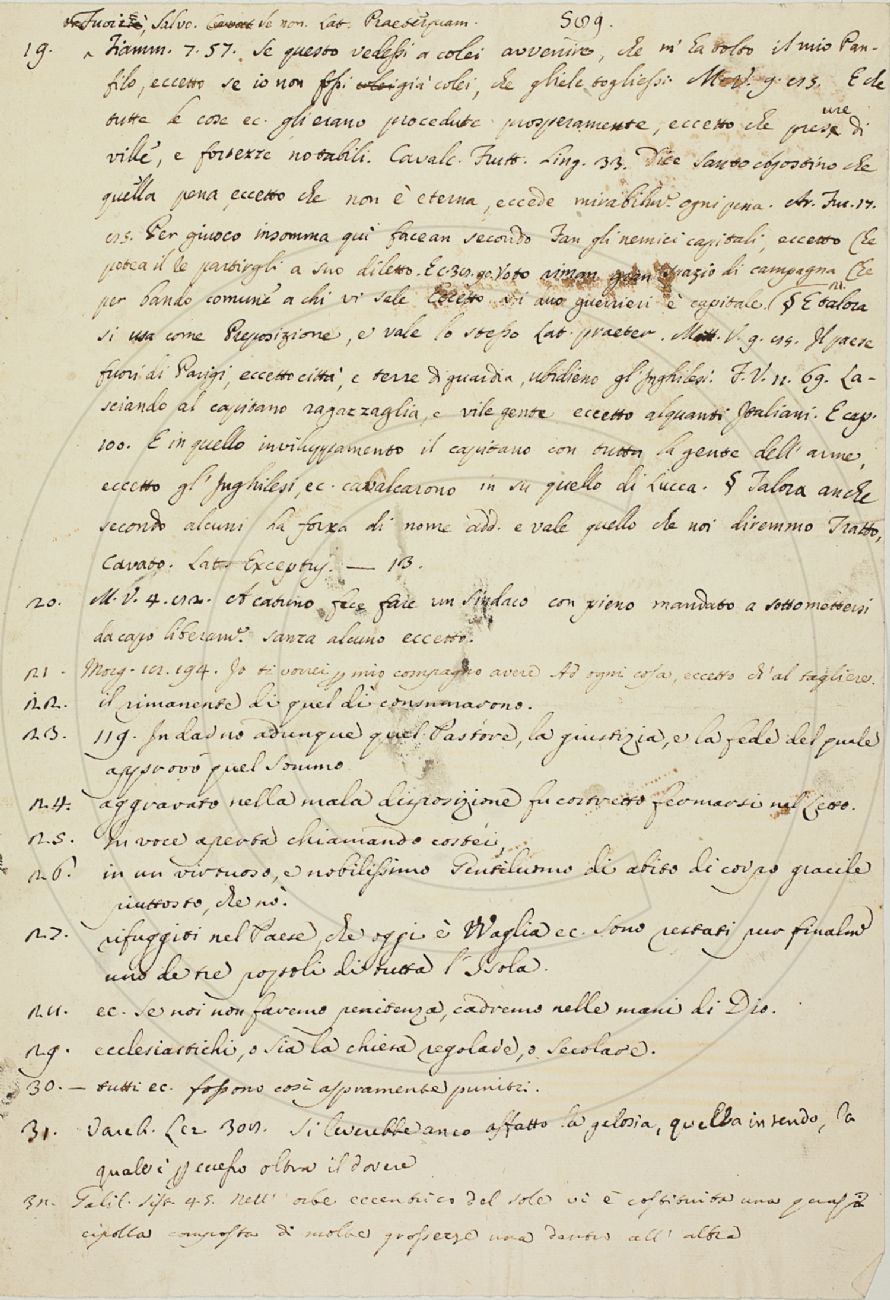 Fuorchè, Salvo. Cavat se non. Lat. Praeterquam. 509.
19. Fiamm. 7. 57. Se questo vedessi a colei avvenire, che m'ha tolto il mio Pan-
filo, eccetto se io non fossi colei già colei, che gliele togliessi. M.V. 9. E che
tutte le cose ec. gli erano procedute prosperamente, eccetto che presure di
ville, e fortezze notabili. Cavalc. Frutt. Ling. 33. Dice Santo Agostino che
quella pena, eccetto che non è eterna, eccede mirabilm.e ogni pena. Ar. Fur. 17.
Per giuoco insomma qui facean secondo Fan gli nemici capitali, eccetto Che
potea il Re partirgli a suo diletto. E Voto riman gran spazio di campagna Che
per bando comune a chi vi sale Eccetto di duo guerrieri è capitale. § E talora
si usa come Preposizione, e vale lo stesso Lat. praeter. Matt. V. 9. Il paese
fuori di Parigi, eccetto città, e terre di guardia, ubidieno gl'Inghilesi. F.V. 11. 69. La-
sciando al capitano ragazzaglia, e vile gente eccetto alquanti Italiani. E cap.
100. E in quello inviluppamento il capitano con tutta la gente dell'arme,
eccetto gl'Inghilesi, ec. cavalcarono in su quello di Lucca. § Talora anche
secondo alcuni ha forza di nome add. e vale quello che noi diremmo Tratto,
Cavato. Lat. Exceptus. — 13.
20. M.V. 4. A catuno fece fare un sindaco con pieno mandato a sottomettersi
da capo liberam.e sanza alcuno eccetto.
21. Morg. 194. Io ti vorrei p mio compagno avere Ad ogni cosa, eccetto ch'al tagliere.
22. il rimanente di quel dì consumarono.
23. 119. Indarno adunque quel Pastore, la giustizia, e la fede del quale
approvò quel sommo
24. aggravato nella mala disposizione fu costretto fermarsi nel Letto.
25. In voce aperta chiamando costei,
26. in un virtuoso, e nobilissimo Gentiluomo di abito di corpo gracile
piuttosto, che nò.
27. rifuggiti nel Paese, che oggi è Waglia ec. sono restati pur finalm.e
uno de tre popoli di tutta l'Isola.
28. ec. se noi non faremo penitenza, cadremo nelle mani di Dio.
29. ecclesiastichi, o sia la chiesa regolare, o secolare.
30. — tutti ec. fossono così aspramente puniti.
31. Varch. Lez. Si leverebbe anco affatto la gelosia, quella intendo, la
quale è p eccesso oltra il dovere
32. Galil. Sist. 45. Nell'orbe eccentrico del sole vi è costituita una grossa
cipolla composta di molte grossezze una dentro all'altra